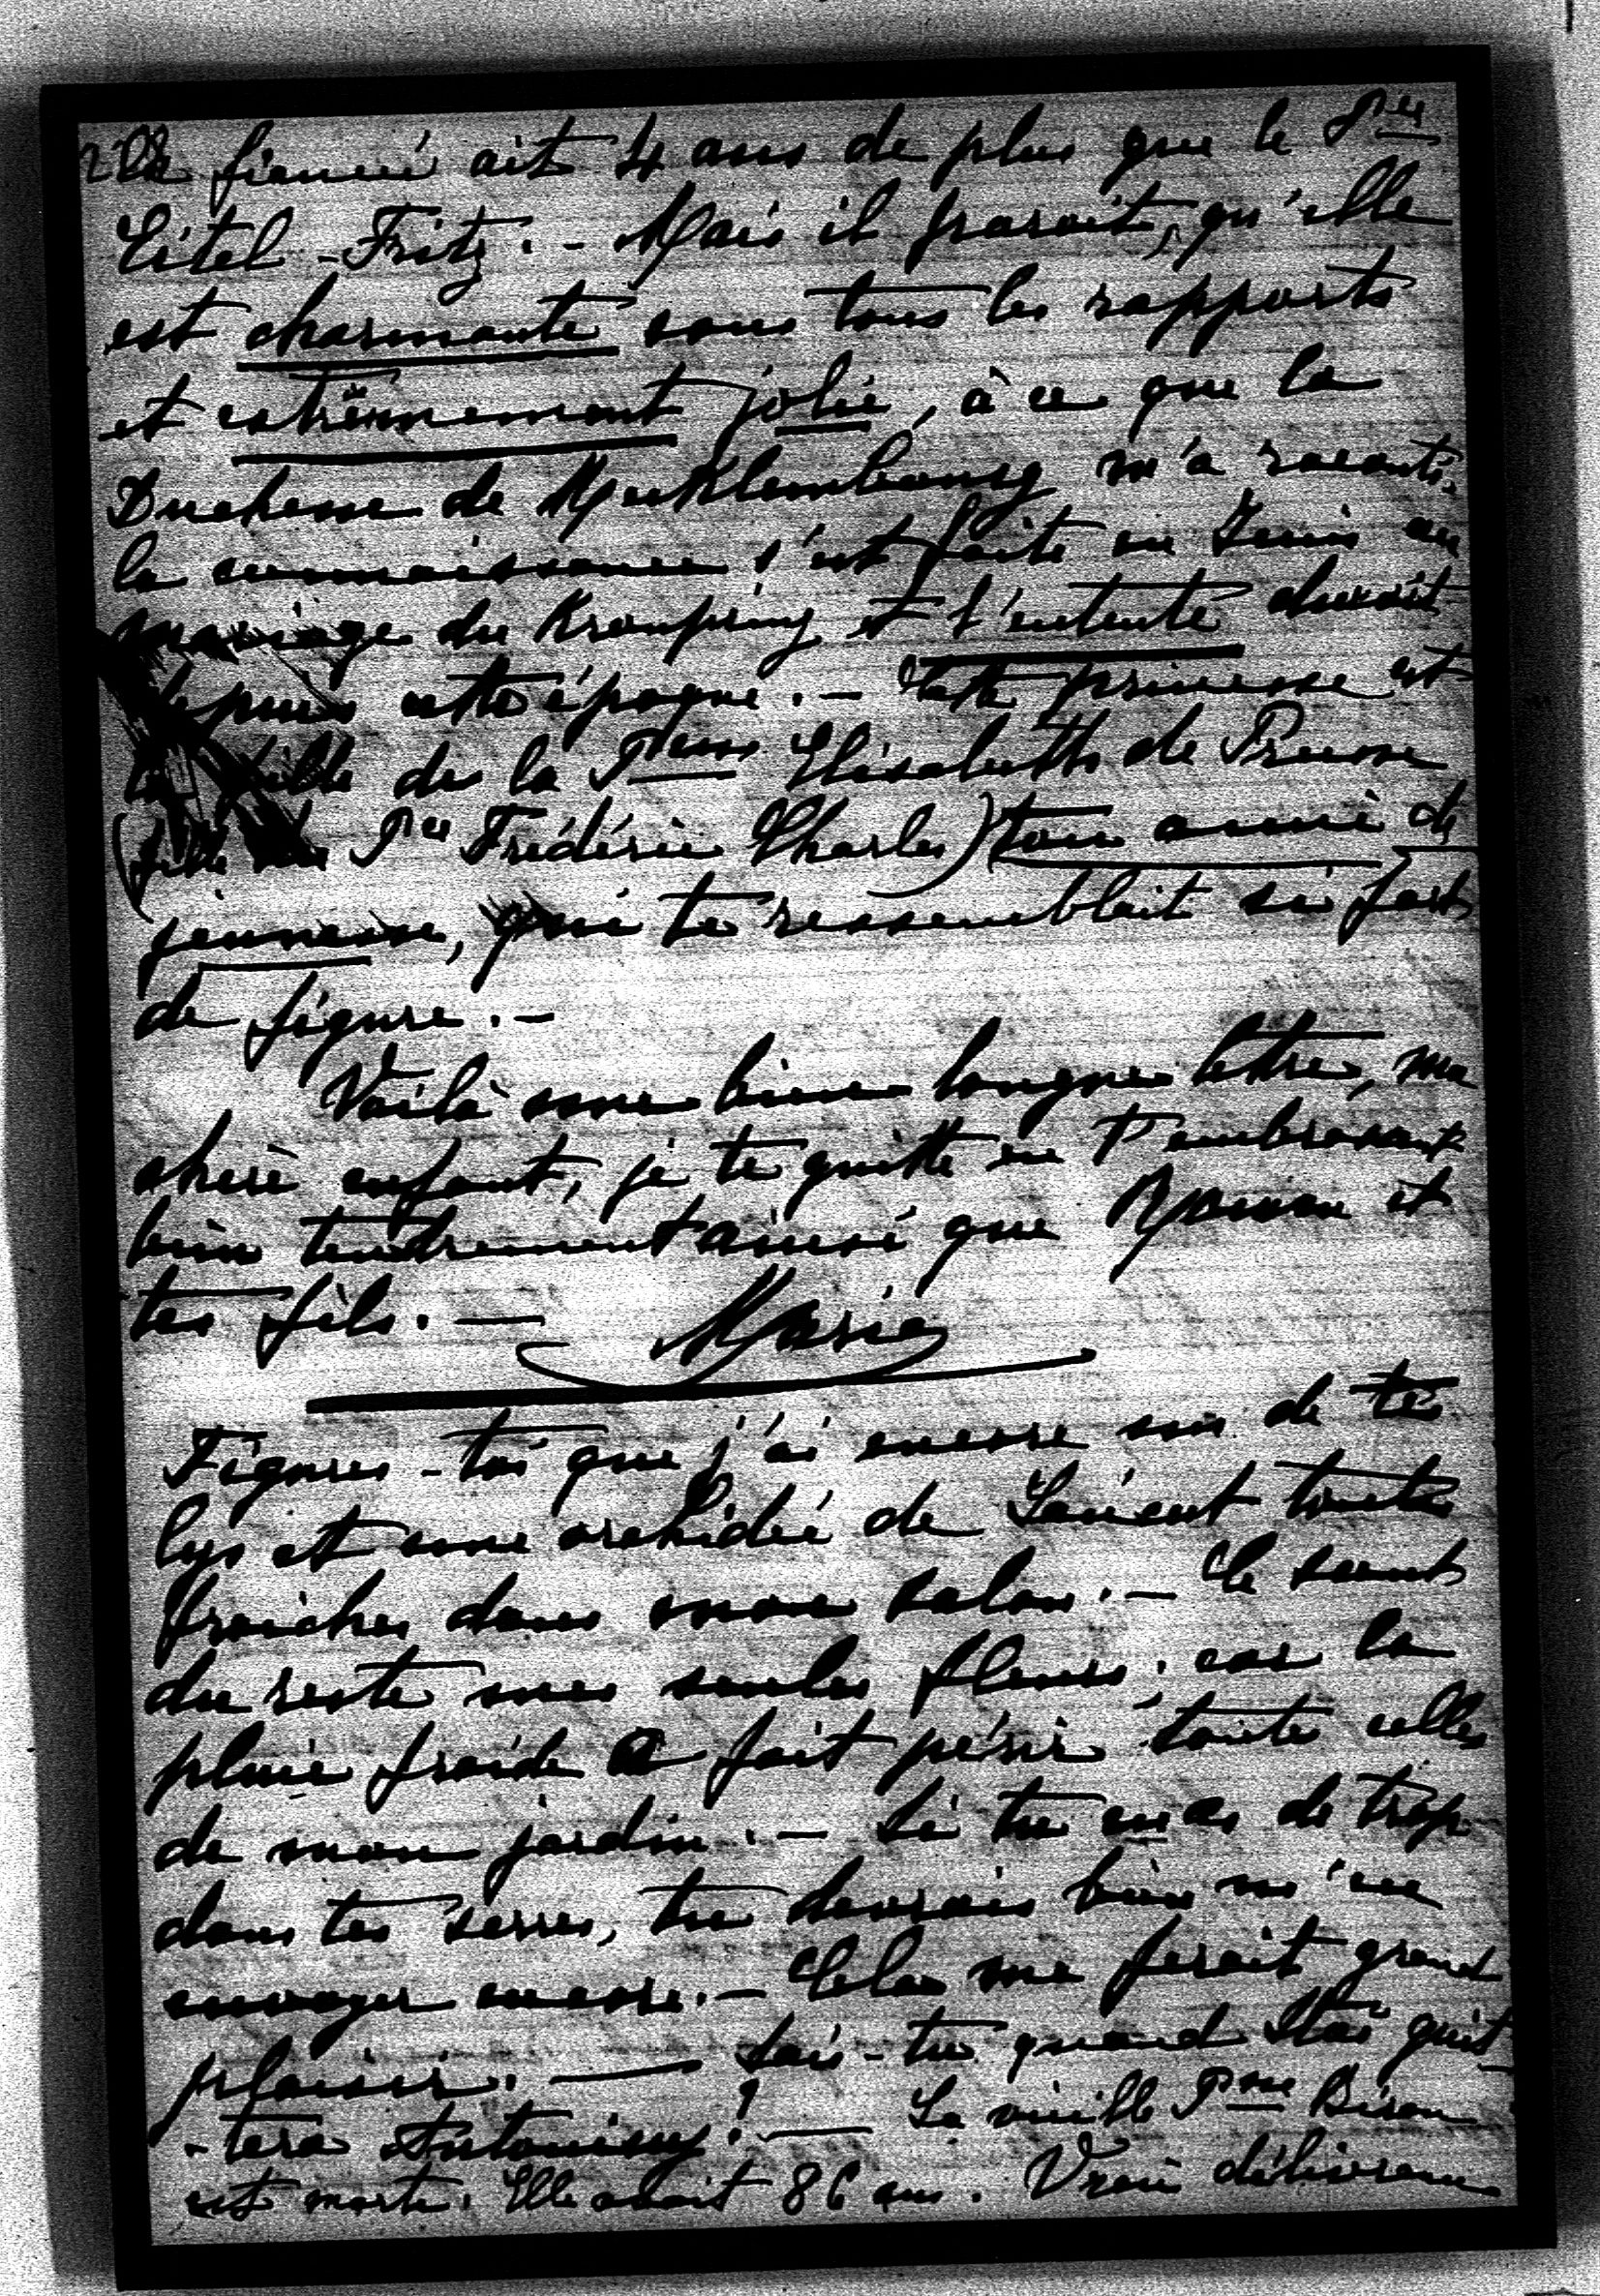 la fiancée ait 4 ans de plus que le Pce
Eitel-Fritz. - Mais il parait, qu'elle
est charmante sous tous les rapports
et extrêmement jolie, à ce que la
Duchesse de Mecklembourg m'a raconté.
la connaissance s'est faite en Juin au
mariage du Kronprinz et l'entente durait
depuis cette époque. - Cette princesse est
la fille de la Pcesse Elisabeth de Prusse
(fille du Pce Frédéric Charles) ton amie de
jeunesse, qui te ressemblait si fort
de figure. -
Voilà une bien longue lettre, ma
chère enfant, je te quitte en t'embrassant
bien tendrement ainsi que et
tes fils. - Marie
Figures-toi que j'ai encore un de tes
lys et une orchidée de toutes
fraiches dans mon salon. - Ce sont
du reste mes seules fleurs, car la
pluie froide a fait périr toute celles
de mon jardin. - Si tu en as de trop
dans tes serres, tu devrais bien m'en
envoyer encore. - Cela me ferait grand
plaisir. - Sais-tu quand Stas quit-
-tera Antoniny? - La vieille Pcesse Biron
est morte. Elle avait 86 ans. Vraie délivrance